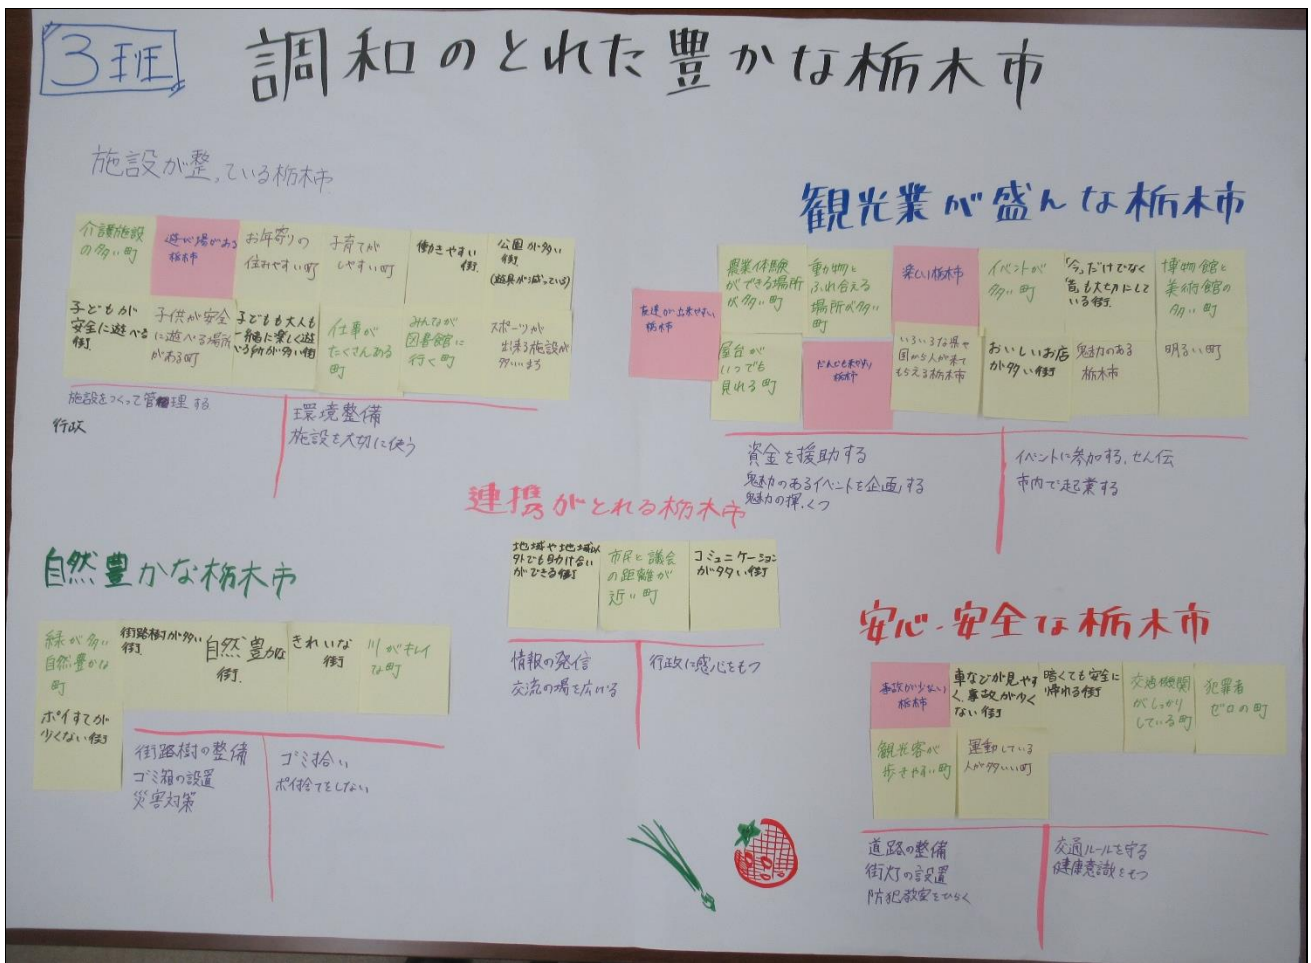 3班
調和のとれた豊かな栃木市
施設が整っている栃木市
介護施設
の多い町
遊び場がある
栃木市
お年寄りの
住みやすい町
子育てが
しやすい町
働きやすい
街
公園が多い
街
(遊具が減っている)
子どもが
安全に遊べる
街
子供が安全
に遊べる場所
がある町
子どもも大人も
一緒に楽しく遊
べる所が多い街
仕事が
たくさんある
町
みんなが
図書館に
行く町
スポーツが
出来る施設が
多いまち
施設をつくって管理する
行政
環境整備
施設を大切に使う
観光業が盛んな栃木市
友達が出来やすい
栃木市
農業体験
ができる場所
が多い町
動物と
ふれ合える
場所が多い
町
楽しい栃木市
イベントが
多い町
「今」だけでなく
「昔」も大切にして
いる街
博物館と
美術館の
多い町
屋台が
いつでも
見れる町
栃木市
いろいろな県や
国から人が来て
もらえる栃木市
おいしいお店
が多い街
魅力のある
栃木市
明るい町
資金を援助する
魅力のあるイベントを企画する
魅力の
イベントに参加する、せん伝
市内で起業する
連携がとれる栃木市
地域や地域以
外でも助け合い
ができる街
市民と議会
の距離が
近い町
コミュニケーション
が多い街
情報の発信
交流の場を広げる
行政に感心をもつ
自然豊かな栃木市
緑が多い
自然豊かな
町
街路樹が多い
街
自然豊かな
街
きれいな
街
川がキレイ
な町
ポイすてが
少くない街
街路樹の整備
ゴミ箱の設置
災害対策
ゴミ拾い
ポイ捨てをしない
安心・安全な栃木市
事故が少ない
栃木市
車などが見やす
く、事故が少く
ない街
暗くても安全に
帰れる街
交通機関
がしっかり
している町
犯罪者
ゼロの町
観光客が
歩きやすい町
運動している
人が多いい町
道路の整備
街灯の設置
防犯教室をひらく
交通ルールを守る
健康意識をもつ